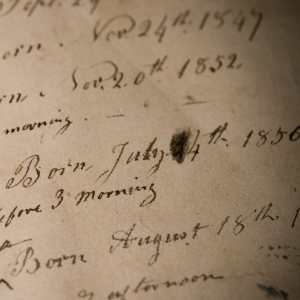 Sept. 29
orn. Nov. 24th 1847
rn. Nov. 20th 1852
morning.
Born July 4th. 1856
efore 3 morning
Born August 18th. 1
3 afternoon